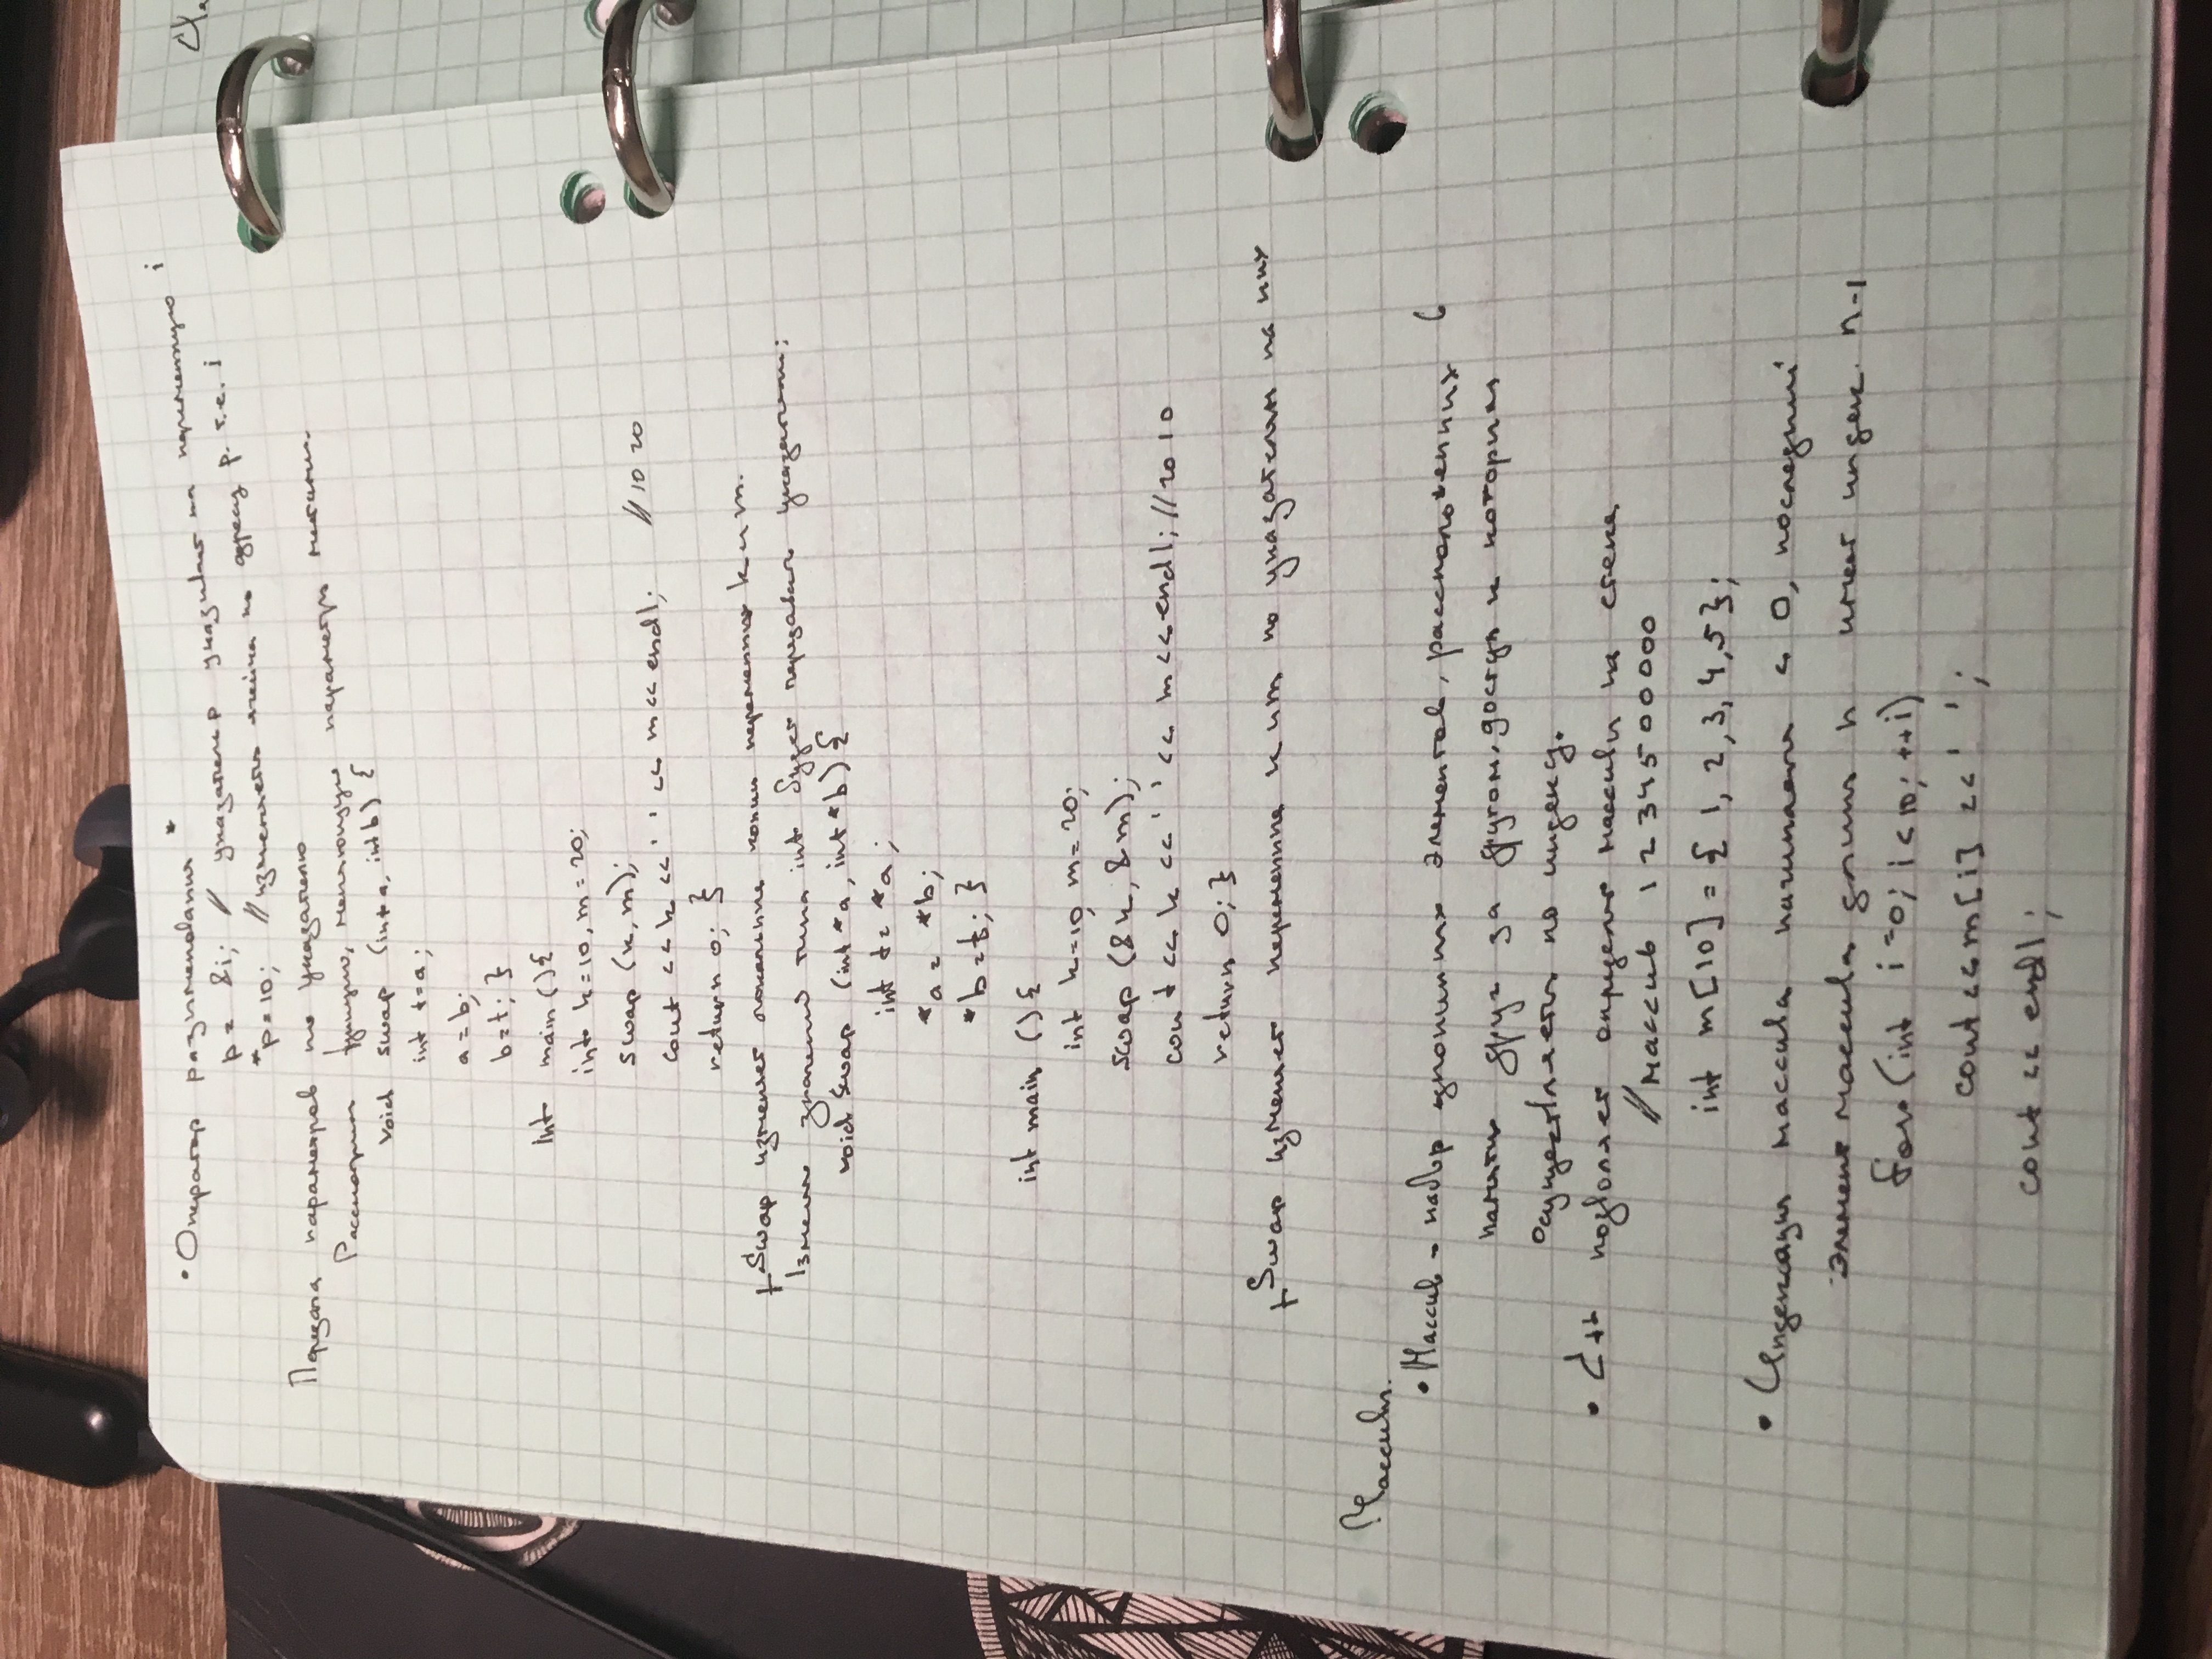 • Оператор разыменования *
p = &i; // указатель p указывает на переменную i
*p = 10; // изменяется ячейка по адресу p. т.е. i
Передача параметров по указателю
Рассмотрим функцию, меняющую параметры местами.
void swap (int a, int b) {
int t = a;
a = b;
b = t; }
Int main () {
int k = 10, m = 20;
swap (k, m);
cout << k << ' ' << m << endl; // 10 20
return 0; }
Swap изменяет локальные копии переменных k и m.
значений типа int будет передавать указатели;
void swap (int *a, int *b) {
int t = *a;
*a = *b;
*b = t; }
int main () {
int k = 10, m = 20;
swap (&k, &m);
cout << k << ' ' << m << endl; // 20 10
return 0; }
Swap изменяет переменные k и m по указателям на них
Массивы.
• Массив - набор однотипных элементов, рассположенных в
памяти друг за другом, доступ к которым
осуществляется по индексу.
• C++ позволяет определять массивы на стеке
// массив 1 2 3 4 5 0 0 0 0 0
int m[10] = { 1, 2, 3, 4, 5 };
• Индексация массива начинается с 0, последний
элемент массива длины n имеет индек. n-1
for (int i = 0; i < 10; ++i)
cout << m[i] << ' ';
cout << endl;